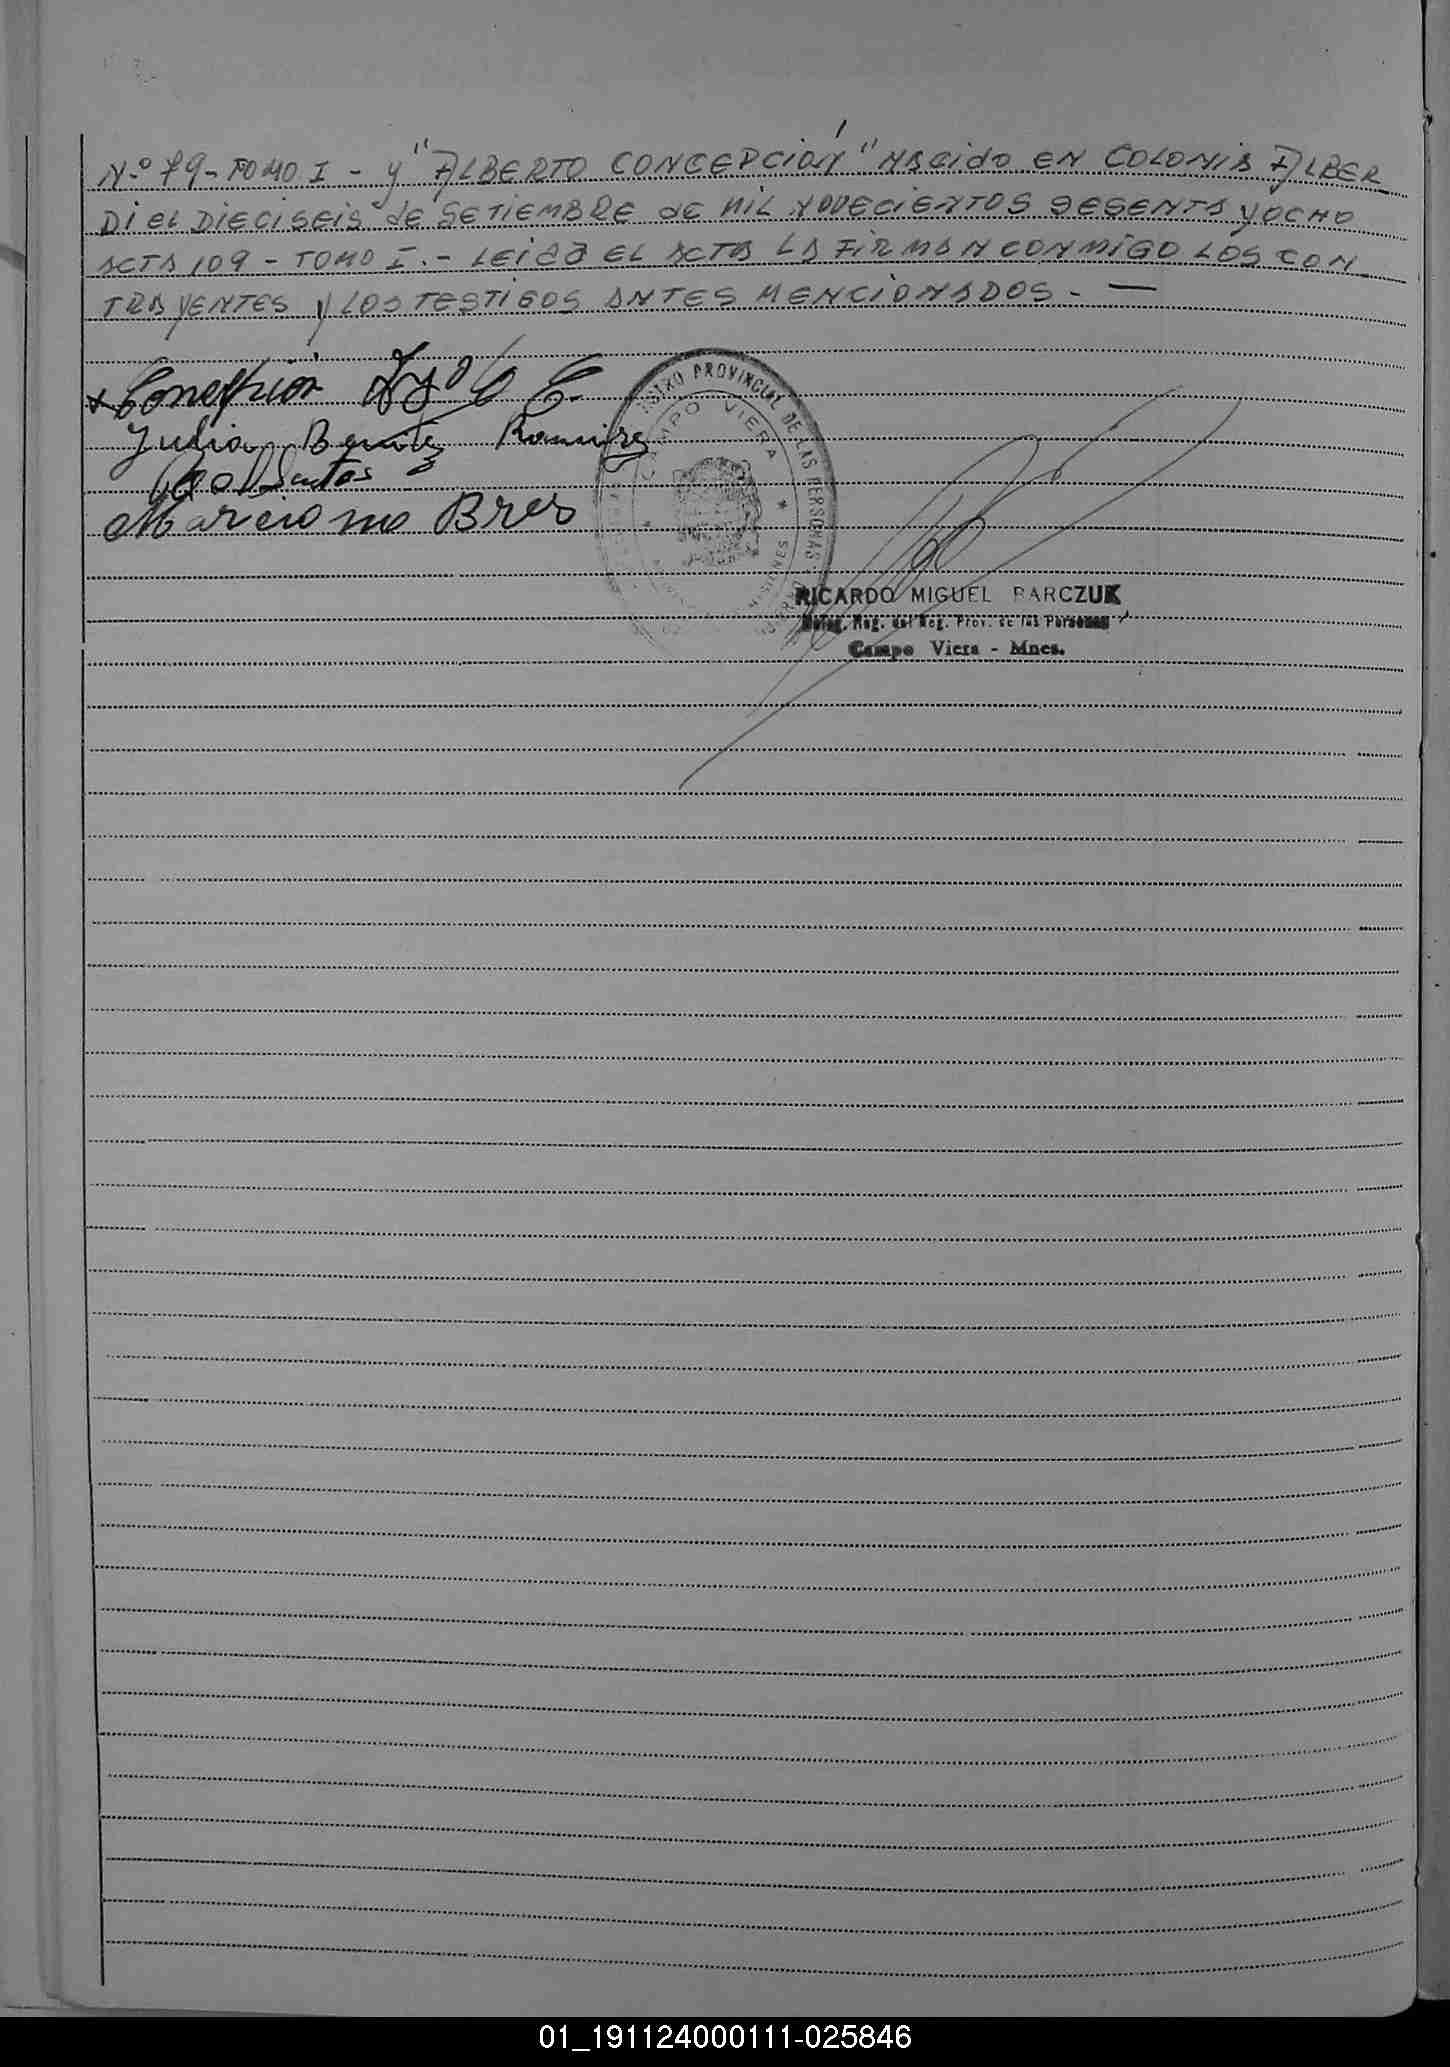 N.º 79 - TOMO I - y "ALBERTO CONCEPCIÓN" NACIDO EN COLONIA ALBER
DI EL DIECISEIS de SETIEMBRE de MIL NOVECIENTOS SESENTA y OCHO
ACTA 109 - TOMO I. - LEIDA EL ACTA LA FIRMAN CONMIGO LOS CON
TRAYENTES y LOS TESTIGOS ANTES MENCIONADOS. —
Concepcion
Julia Benitez Ramirez
Santos
Marciano Bres
REGISTRO PROVINCIAL DE LAS PERSONAS
CAMPO VIERA
MISIONES
RICARDO MIGUEL BARCZUK
Deleg. Reg. del Reg. Prov. de las Personas
Campo Viera - Mnes.
01_191124000111-025846